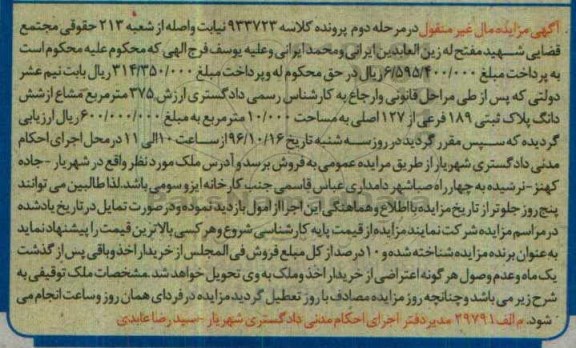 آگهی مزایده مال غیر منقول در مرحله دوم پرونده کلاسه ۹۳۳۷۲۳ نیابت واصله از شعبه ۲۱۳ حقوقی مجتمع
قضایی شهید مفتح له زین العابدین ایرانی و محمد ایرانی و علیه یوسف فرج الهی که محکوم علیه محکوم است
به پرداخت مبلغ ۶/۵۹۵/۴۰۰/۰۰۰ ریال در حق محکوم له و پرداخت مبلغ ۳۱۴/۳۵۰/۰۰۰ ریال بابت نیم عشر
دولتی که پس از طی مراحل قانونی و ارجاع به کارشناس رسمی دادگستری ارزش ۳۷۵ متر مربع مشاع از شش
دانگ پلاک ثبتی ۱۸۹ فرعی از ۱۲۷ اصلی به مساحت ۱۰/۰۰۰ متر مربع به مبلغ ۶۰۰/۰۰۰/۰۰۰ ریال ارزیابی
گردیده که سپس مقرر گردید در روز سه شنبه تاریخ ۹۶/۱۰/۱۶ از ساعت ۱۰ الی ۱۱ در محل اجرای احکام
مدنی دادگستری شهریار از طریق مزایده عمومی به فروش برسد و آدرس ملک مورد نظر واقع در شهریار - جاده
کهنز - نرشیده به چهار راه صباشهر دامداری عباس قاسمی جنب کارخانه ایزوسومی باشد. لذا طالبین می توانند
پنج روز جلوتر از تاریخ مزایده با اطلاع و هماهنگی این اجرا از اموال بازدید نموده و در صورت تمایل در تاریخ یاد شده
در مراسم مزایده شرکت نمایند مزایده از قیمت پایه کارشناسی شروع و هر کسی بالاترین قیمت را پیشنهاد نماید
به عنوان برنده مزایده شناخته شده و ۱۰ درصد از کل مبلغ فروش فی المجلس از خریدار اخذ و باقی پس از گذشت
یک ماه و عدم وصول هر گونه اعتراضی از خریدار اخذ و ملک به وی تحویل خواهد شد. مشخصات ملک توقیفی به
شرح زیر می باشد و چنانچه روز مزایده مصادف با روز تعطیل گردید مزایده در فردای همان روز و ساعت انجام می
شود. م الف ۲۹۷۹۱ مدیر دفتر اجرای احکام مدنی دادگستری شهریار - سید رضا عابدی